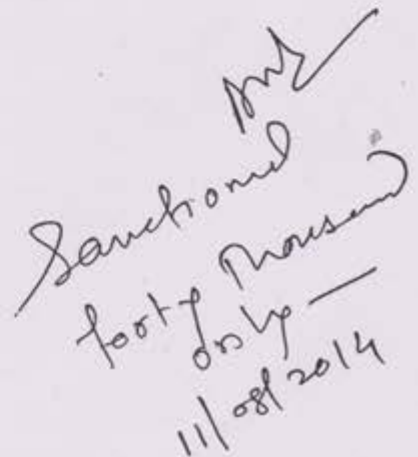 Sanctioned
forty Thousand
only —
11/08/2014